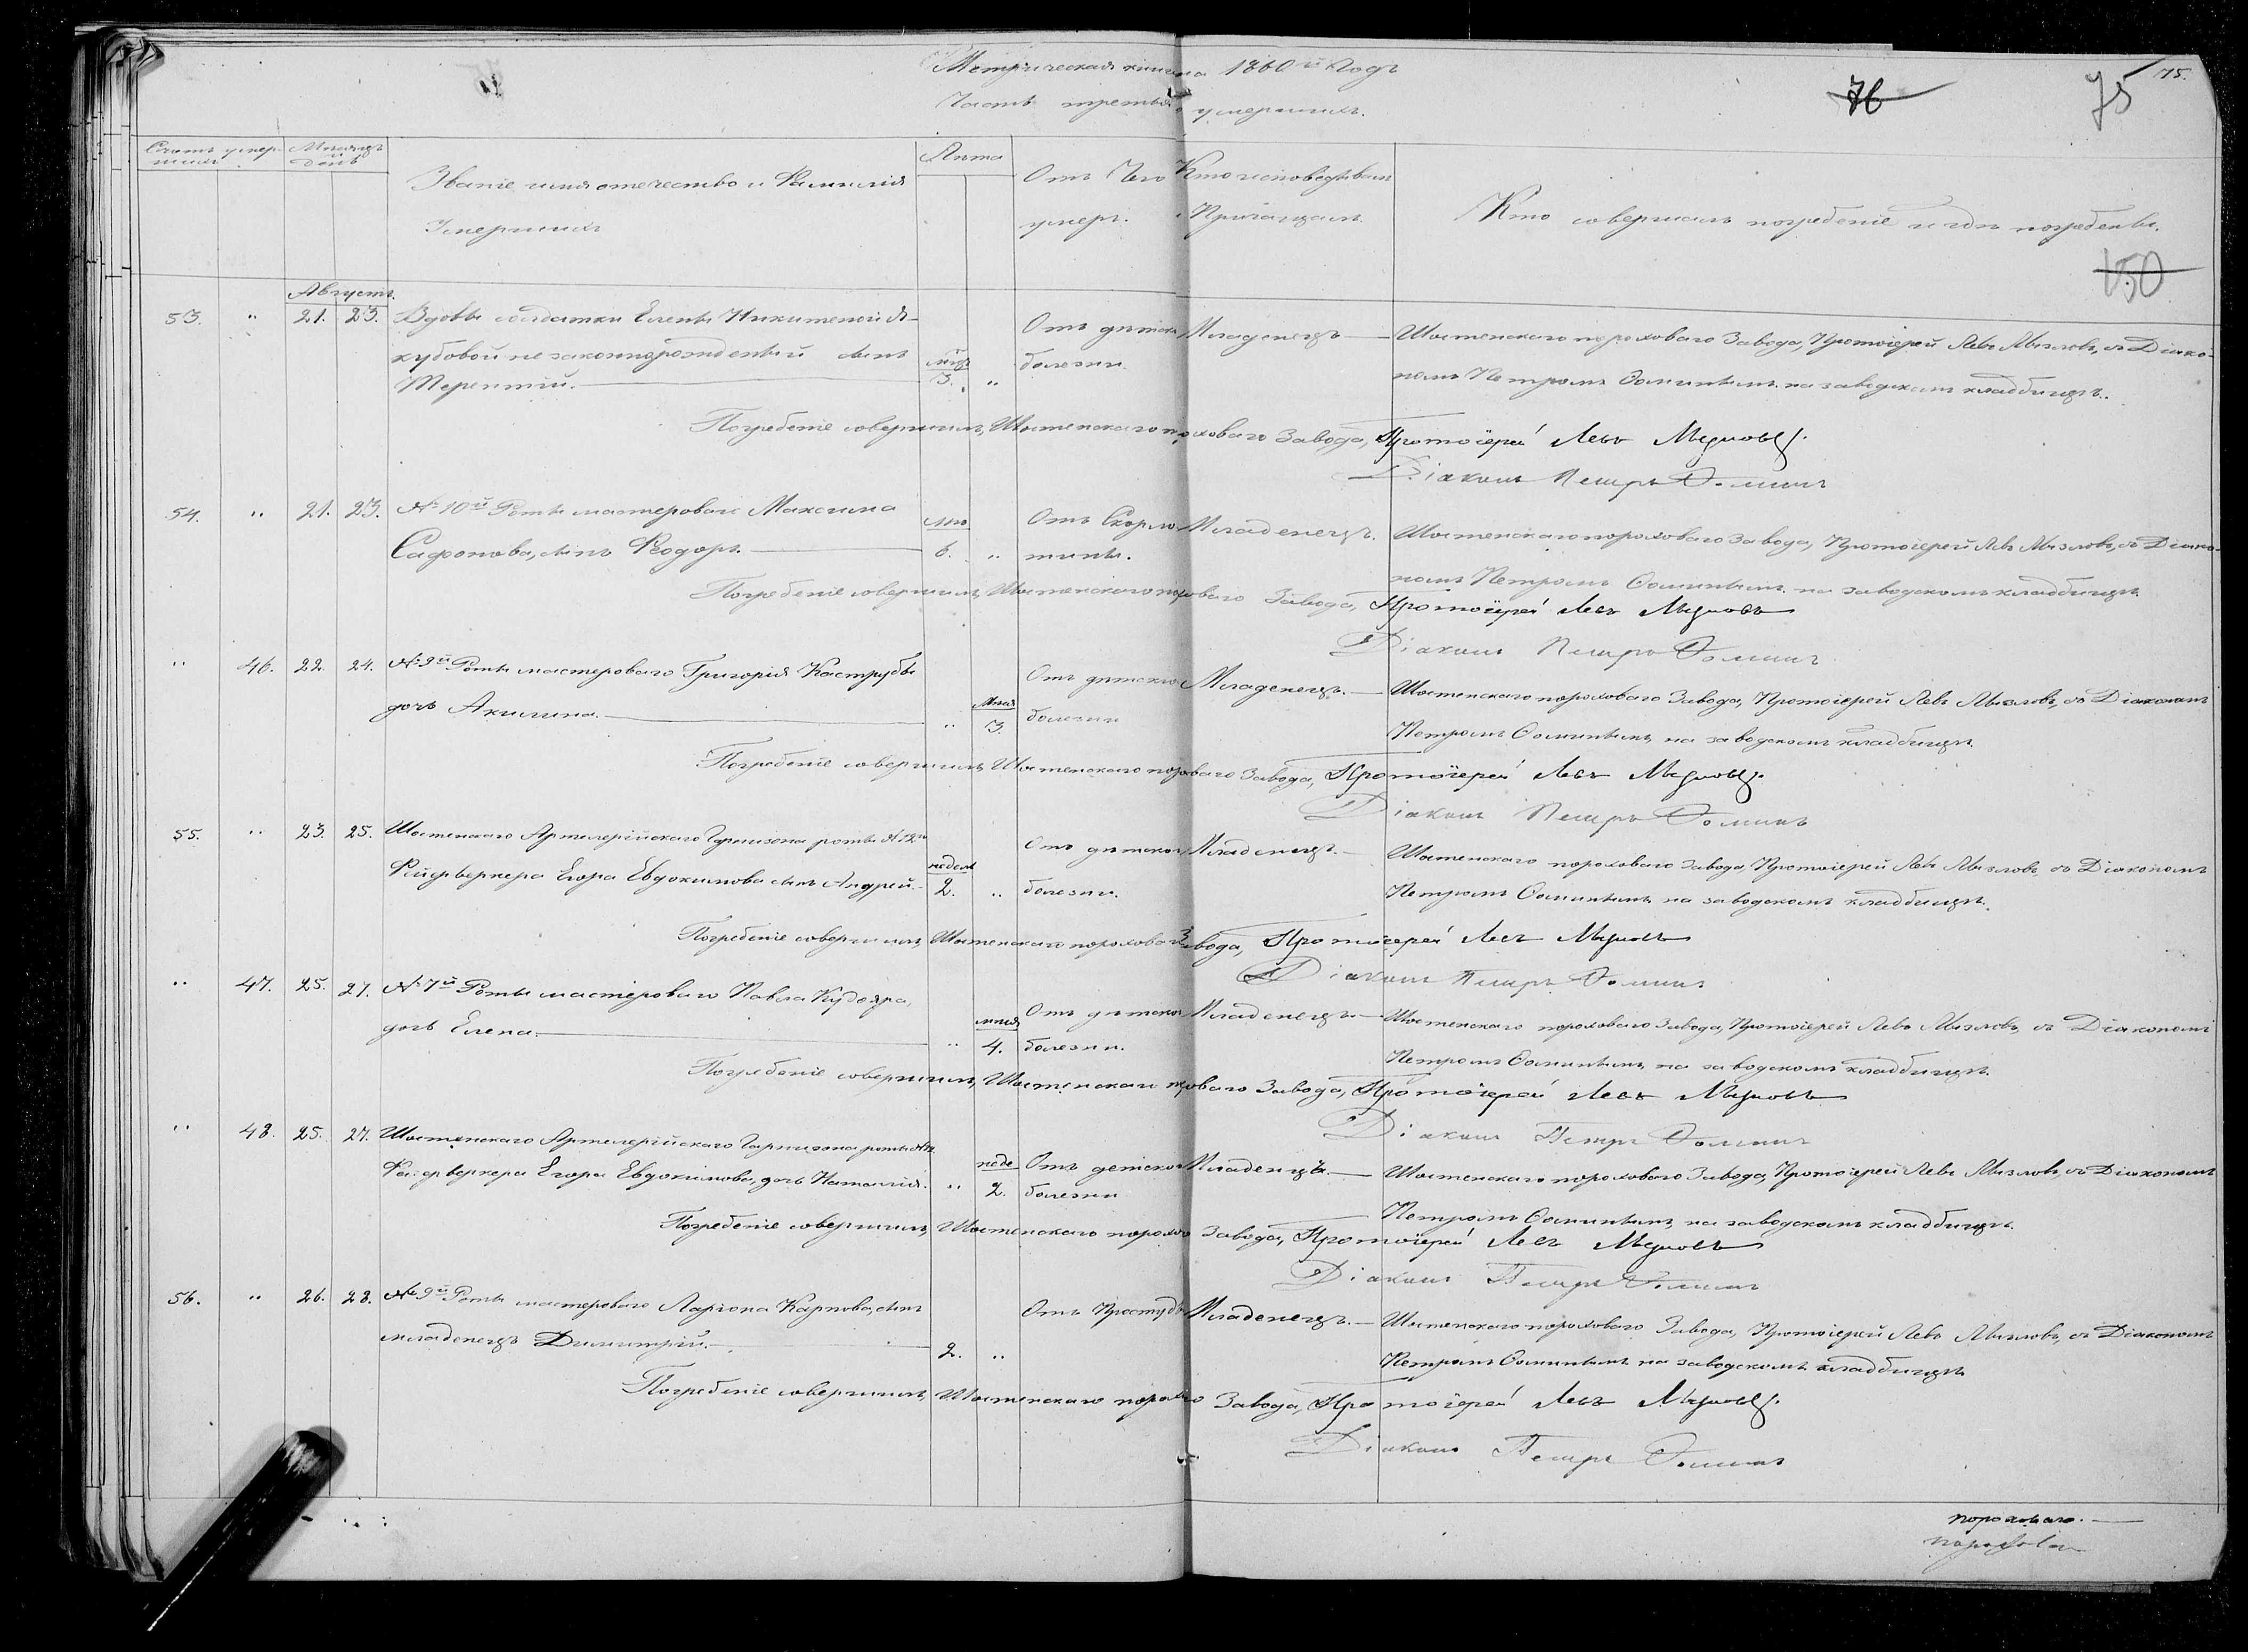 Метрическая книга 1860й Годъ
Часть третья о умершихъ.
76
75
75.
Счетъ умершихъ
Месяцъ и день
Званіе имя отечество и Фамилія Умершихъ
Лета
Отъ Чего умеръ.
Кто исповедывалъ и Причащалъ
Кто совершалъ погребеніе и где погребены.
150
Августъ.
53. " 21. 23. Вдовы солдатки Елены Никитеной Я- Отъ детской Младенецъ — Шостенскаго пороховаго Завода, Протоіерей Левъ Мызловъ, съ Діако-
кубовой незаконнорожденный сынъ мцъ болезни.
Терентій. — 3. " номъ Петромъ Ѳоминымъ на заводскомъ кладбище.
Погребеніе совершилъ, Шостенскаго пороховаго Завода, Протоіерей Левъ Мызловъ.
Діаконъ Петръ Ѳоминъ
54. " 21. 23. № 10й Роты мастероваго Максима Отъ Скорла- Младенецъ. Шостенскаго пороховаго Завода, Протоіерей Левъ Мызловъ, съ Діако-
Сафонова, сынъ Ѳеодоръ. — 6. " тины. номъ Петромъ Ѳоминымъ на заводскомъ кладбище
Погребеніе совершилъ, Шостенскаго пороховаго Завода, Протоіерей Левъ Мызловъ
Діаконъ Петръ Ѳоминъ
" 46. 22. 24. № 9й Роты мастероваго Григорія Каструбы Отъ детской Младенецъ. — Шостенскаго пороховаго Завода, Протоіерей Левъ Мызловъ, съ Діакономъ
дочь Акилина. — " 3. болезни Петромъ Ѳоминымъ на заводскомъ кладбище
Погребеніе совершилъ Шостенскаго пороховаго Завода, Протоіерей Левъ Мызловъ.
Діаконъ Петръ Ѳоминъ
55. " 23. 25. Шостенскаго Артилерійскаго Гарнизона роты № 12й Отъ детской Младенецъ. — Шостенскаго пороховаго Завода Протоіерей Левъ Мызловъ, съ Діакономъ
Фейерверкера Егора Евдокимова сынъ Андрей. недели 2. " болезни. Петромъ Ѳоминымъ на заводскомъ кладбище.
Погребеніе совершилъ, Шостенскаго пороховаго Завода, Протоіерей Левъ Мызловъ
Діаконъ Петръ Ѳоминъ
" 47. 25. 27. № 7й Роты мастероваго Павла Кудояра, Отъ детской Младенецъ. — Шостенскаго пороховаго Завода, Протоіерей Левъ Мызловъ, съ Діакономъ
дочь Елена. — " 4. болезни. Петромъ Ѳоминымъ, на заводскомъ кладбище.
Погребеніе совершилъ, Шостенскаго пороховаго Завода, Протоіерей Левъ Мызловъ
Діаконъ Петръ Ѳоминъ
" 48. 25. 27. Шостенскаго Артилерійскаго Гарнизона роты № 12 Отъ детской Младенецъ. — Шостенскаго пороховаго Завода, Протоіерей Левъ Мызловъ, съ Діакономъ
Фейерверкера Егора Евдокимова, дочь Наталія. " неде 2. болезни Петромъ Ѳоминымъ, на заводскомъ кладбище.
Погребеніе совершилъ, Шостенскаго порохого Завода, Протоіерей Левъ Мызловъ
Діаконъ Петръ Ѳоминъ
56. " 26. 28. № 9й Роты мастероваго Ларіона Карпова, сынъ Отъ Простуды Младенецъ. — Шостенскаго пороховаго Завода, Протоіерей Левъ Мызловъ, съ Діакономъ
младенецъ Димитрій. — 2. " Петромъ Ѳоминымъ на заводскомъ кладбище
Погребеніе совершилъ, Шостенскаго порохого Завода, Протоіерей Левъ Мызловъ.
Діаконъ Петръ Ѳоминъ
пороховаго. —